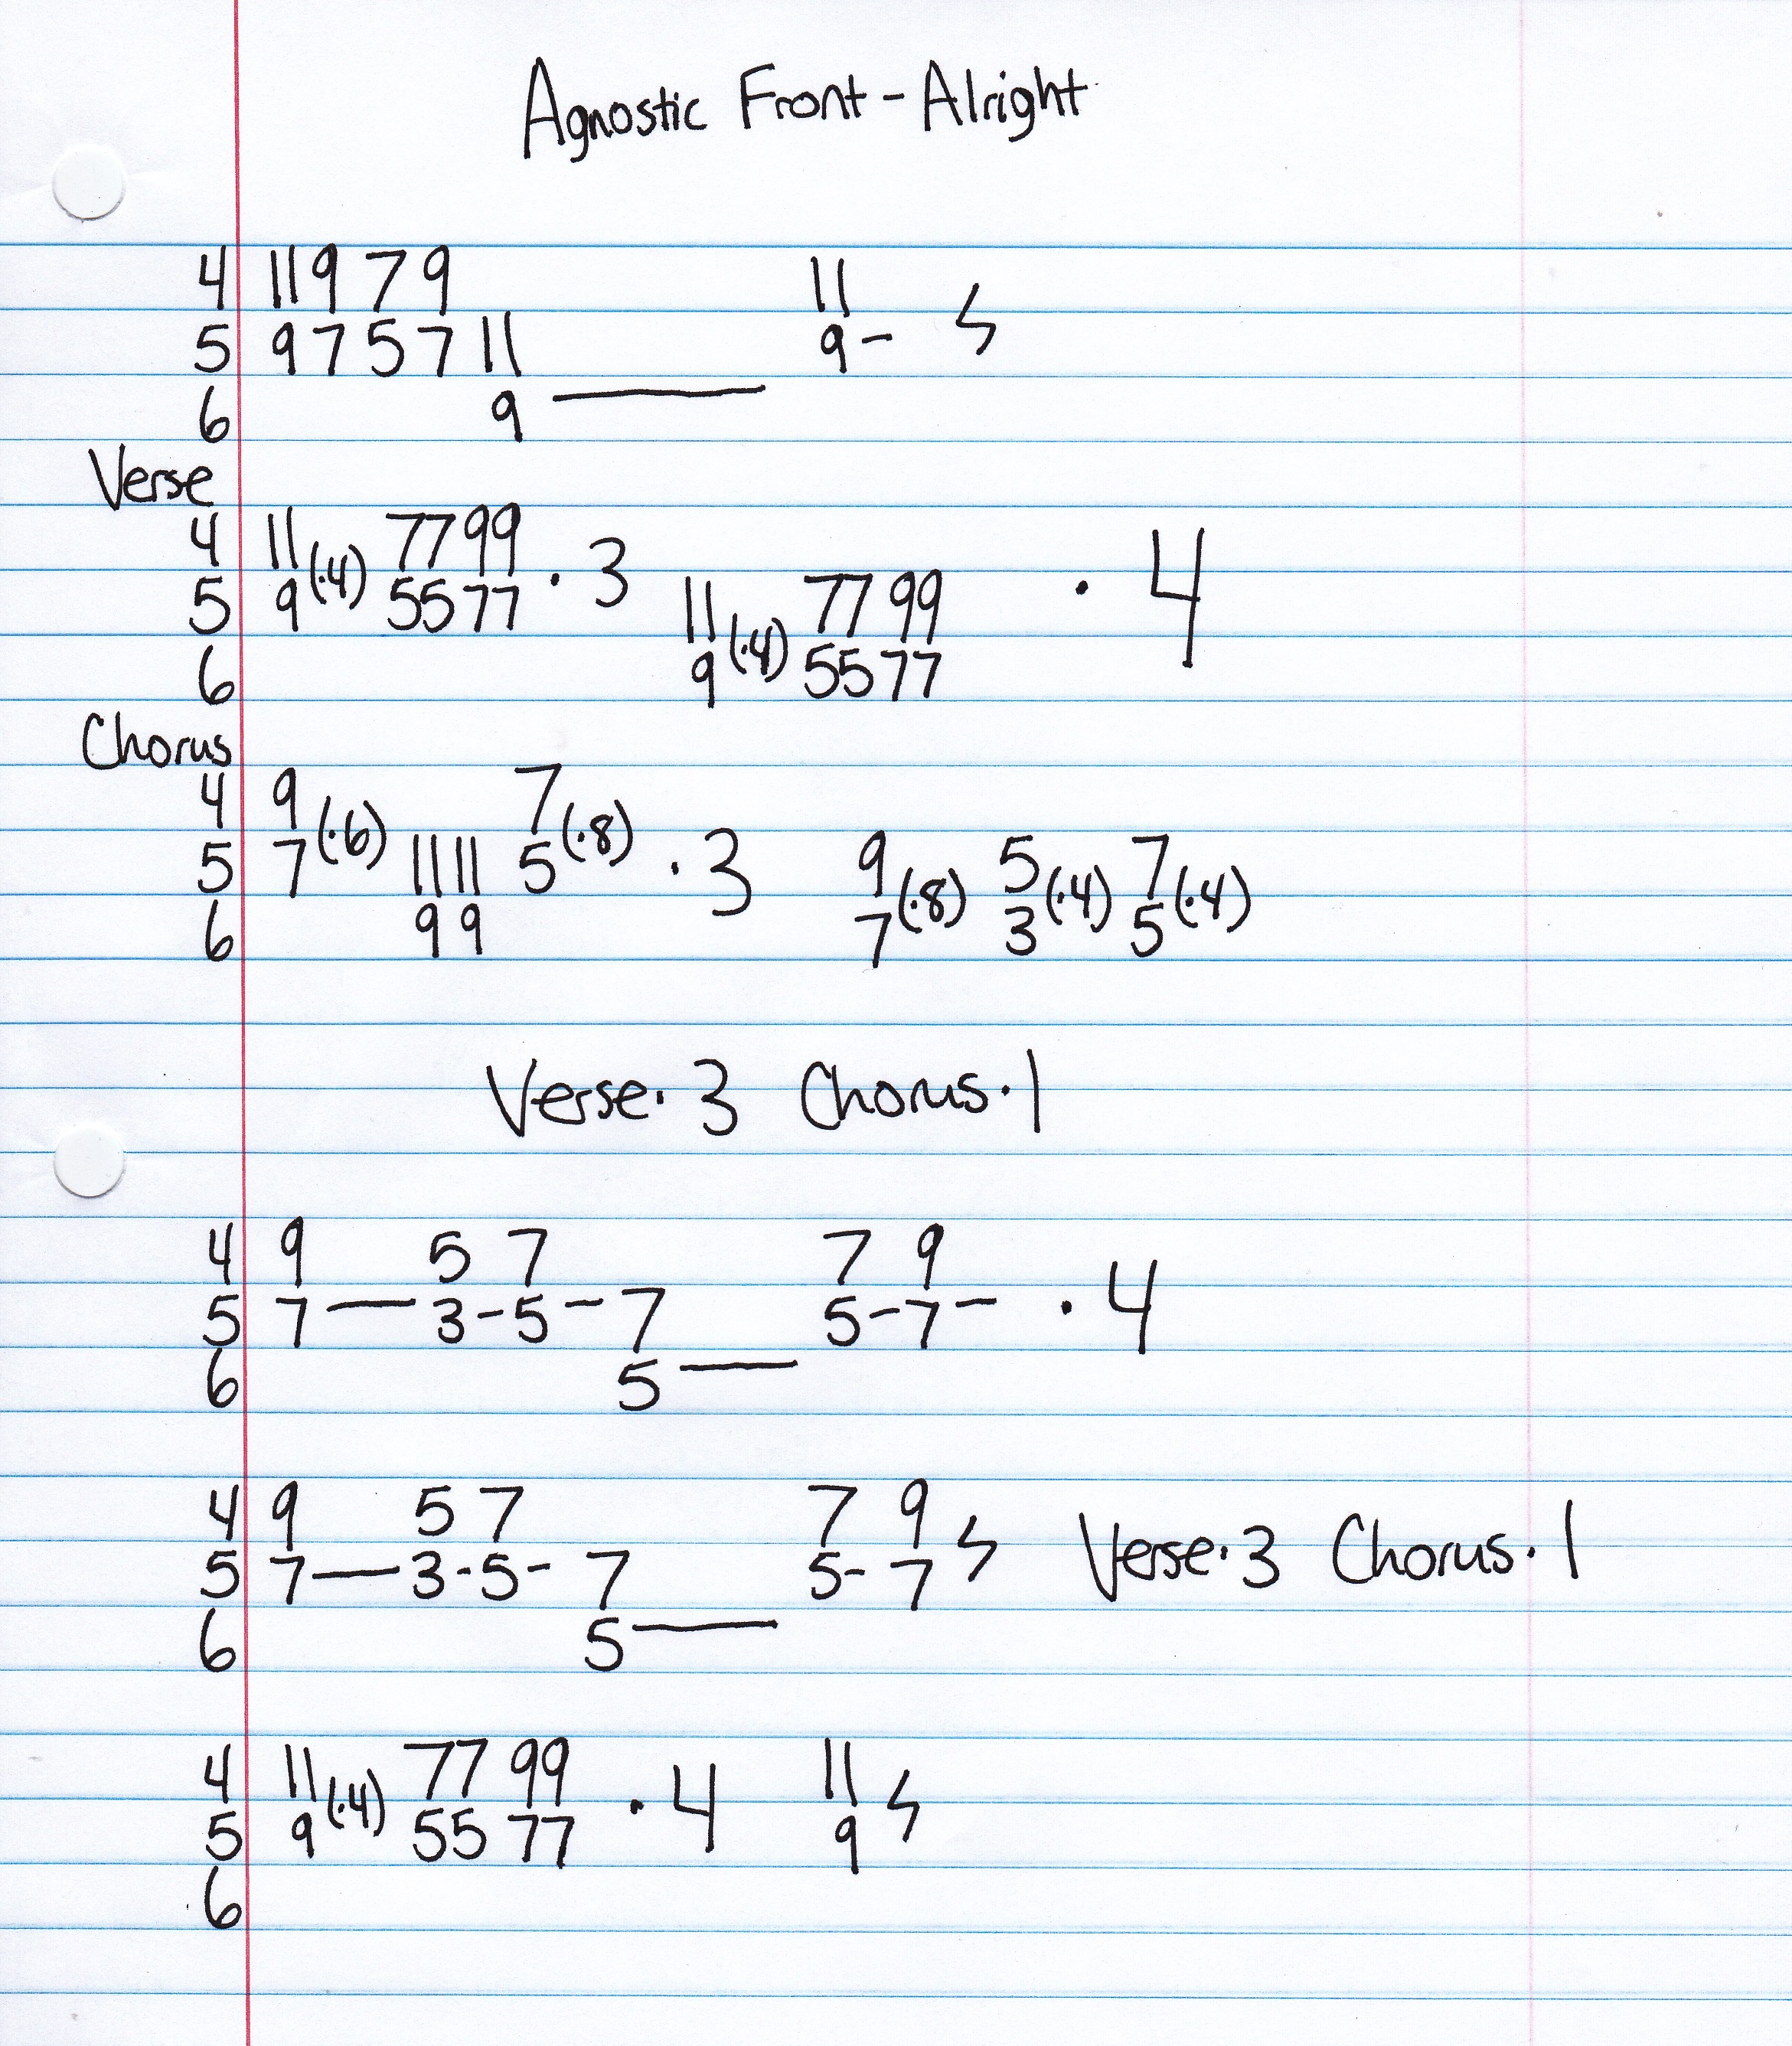 Agnostic Front - Alright
4 11 9 7 9 11
5 9 7 5 7 11 9-
6 9
Verse
4 11 (·4) 77 99 · 3 · 4
5 9 55 77 11 (·4) 77 99
6 9 55 77
Chorus
4 9 (·6) 7 (·8)
5 7 11 11 5 · 3 9 (·8) 5 (·4) 7 (·4)
6 9 9 7 3 5
Verse· 3 Chorus·1
4 9 5 7 7 9
5 7 — 3 - 5 - 7 5 - 7 - · 4
6 5 —
4 9 5 7 7 9 Verse·3 Chorus·1
5 7 — 3 - 5 - 7 5 - 7
6 5 —
4 11 (·4) 77 99 · 4 11
5 9 55 77 9
6